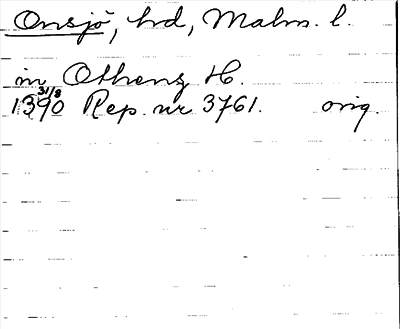 Onsjö, hd, Malm. l.
in Othensz H.
1390 31/8 Rep. nr 3761. orig.